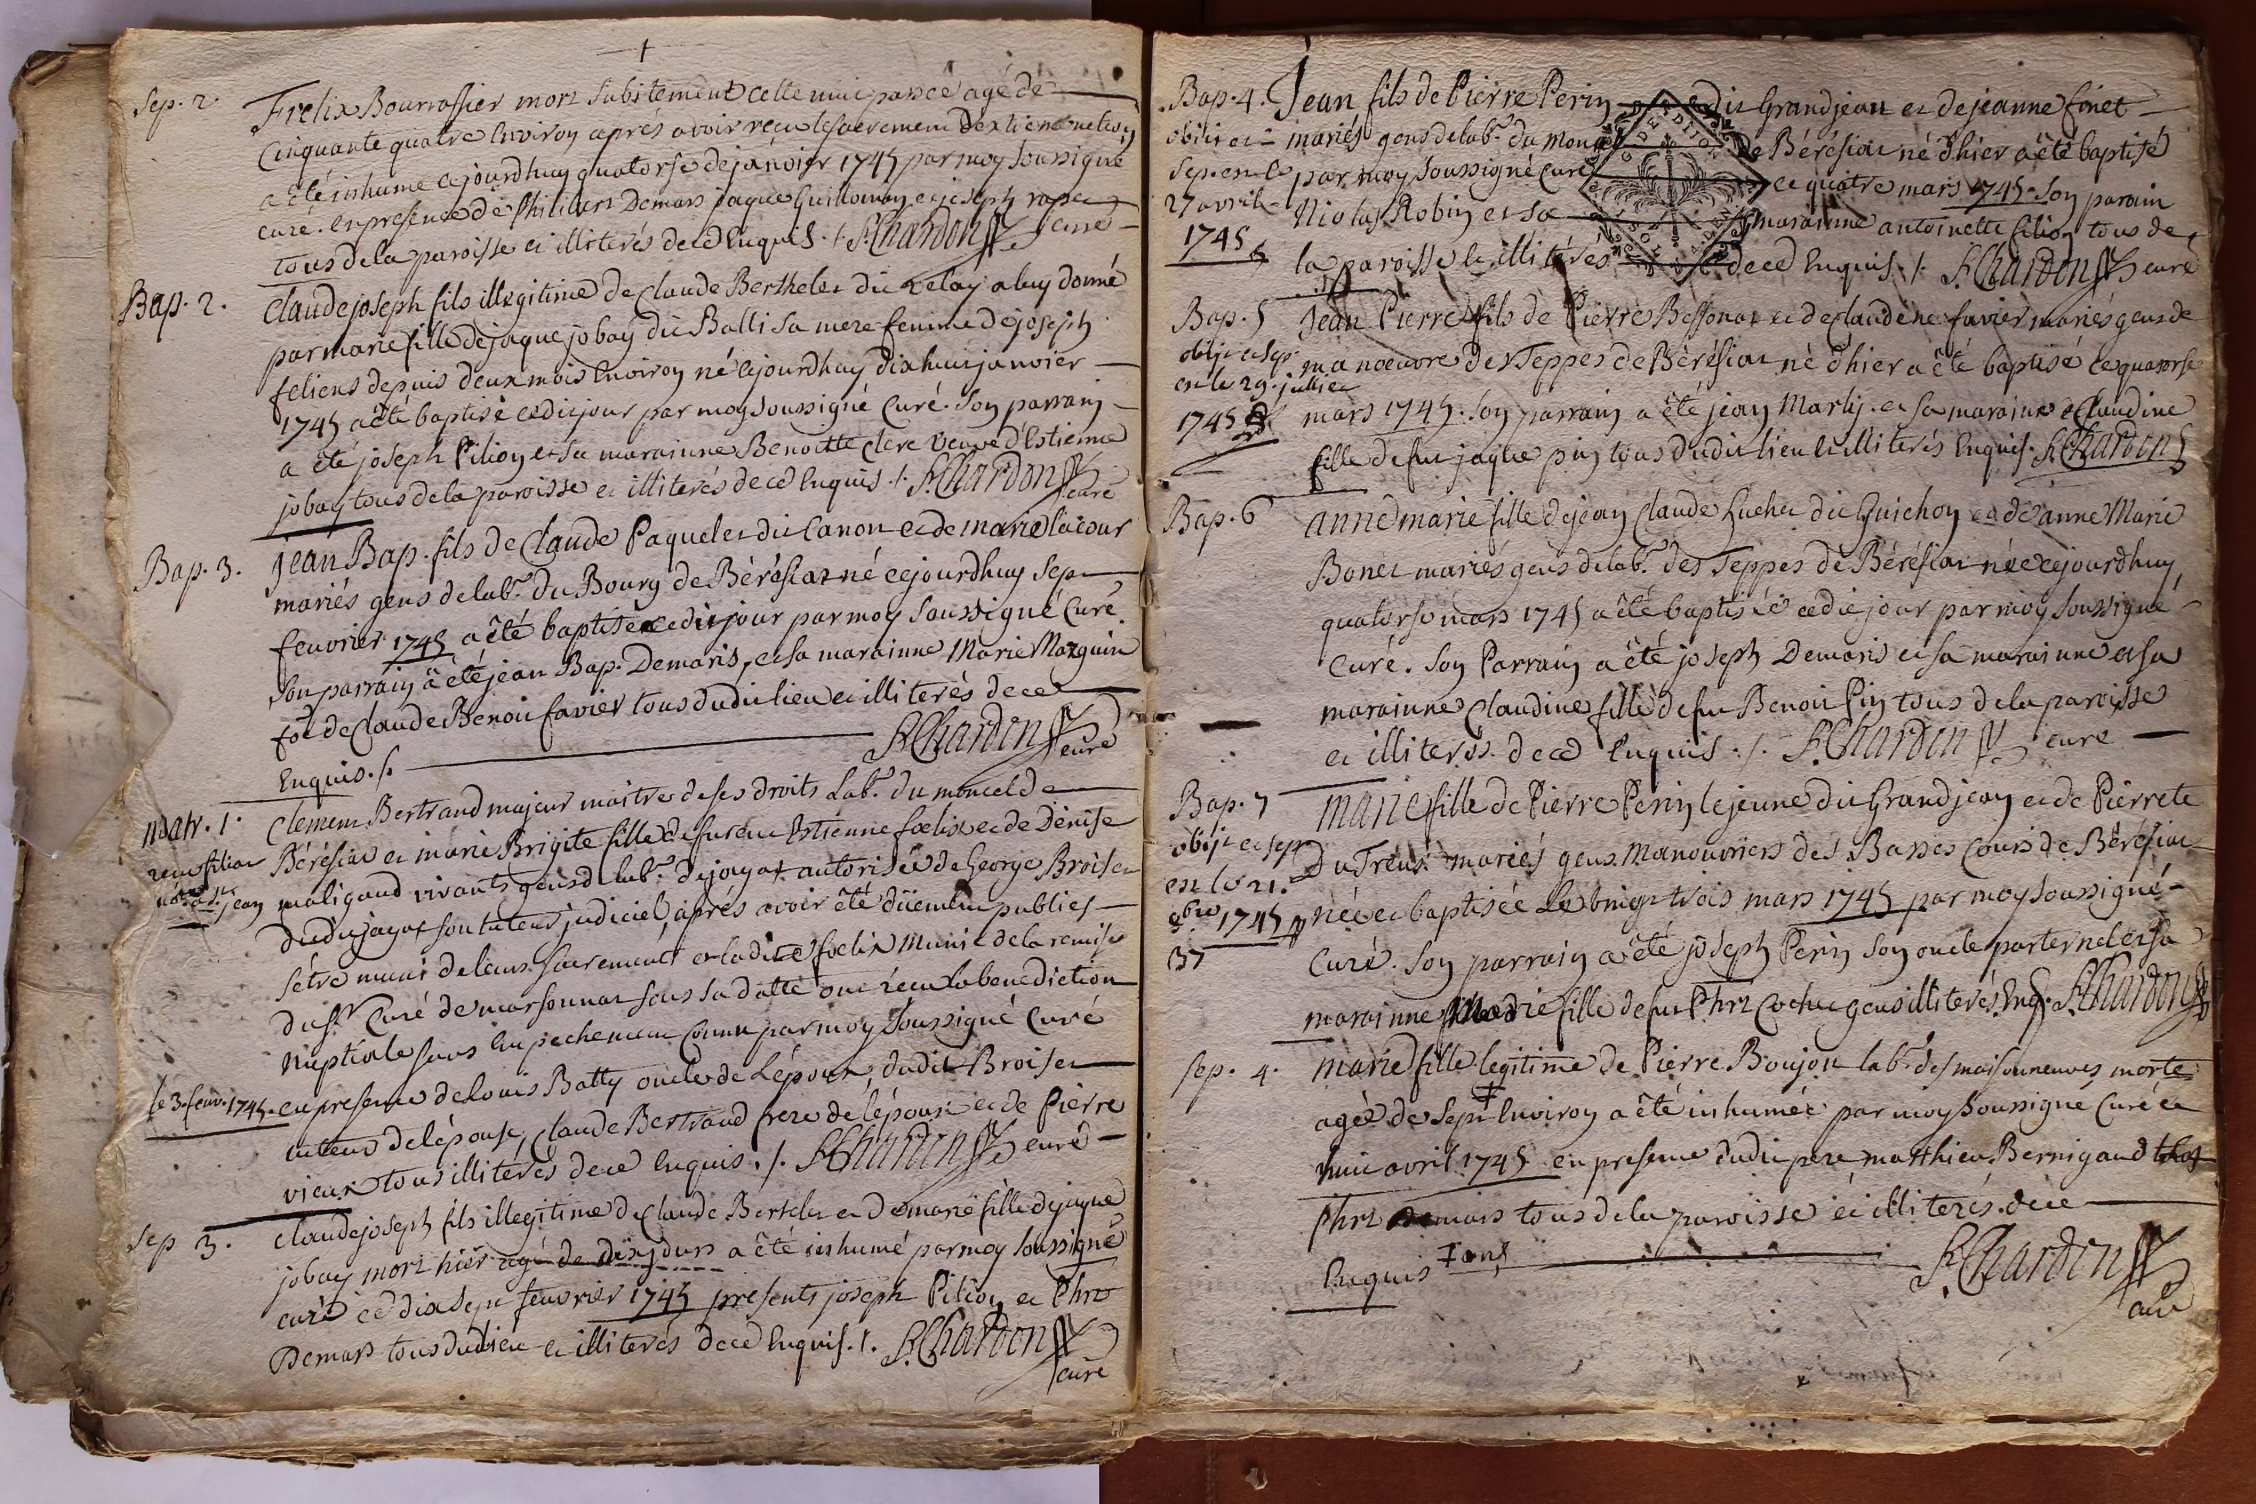 Sep. 2. Frelix Bourrassier mort subitement cette nuit passé agé de
Cinquante quatre Environ apres avoir reçu le sacrement d'extreme
a été inhumé cejourdhuy quatorse de janvier 1745 par moy soussigné
curé. en presence de Philibert Demars jaque Guillomoy et joseph
tous de la paroisse et illiterés de ce Enquis ./. S. Chardon curé
Bap. 2. Claude joseph fils illegitime de Claude Berthelet du a luy donné
par marie fille de jaque jobay dit Balli sa mere femme de joseph
feliens depuis deux mois Environ né cejourdhuy dix huit janvier
1745 a été baptisé cedit jour par moy soussigné Curé. Son parrain
a été joseph Pilion et sa marainne Benoitte Clere veuve d'Estienne
jobay tous de la paroisse et illiterés de ce Enquis ./. S. Chardon curé
Bap. 3. jean Bap. fils de Claude Paquelet dit Canon et de marie lacour
mariés gens de lab.r du Bourg de Bérésiat né cejourdhuy sept
feuvrier 1745 a été baptisé cedit jour par moy soussigné Curé.
son parrain a été jean Bap. Demaris, et sa marainne Marie Mazguin
f.e de Claude Benoit favier tous dudit lieu et illiterés de ce
Enquis ./. S. Chardon curé
Matr. 1. Clement Bertrand majeur maitre de ses droits Lab.r du moncel de
Bérésiat et marie Brigite fille de fureut Estienne foelix et de Denise
maligaud vivants gens d lab.r de jayat autorisée de George Broiset
dudit jayat son tuteur judiciel, aprés avoir été düement publies
s'étre muni de leurs sacrements et ladite foelix Munie de la remise
du S.r Curé de marsonnat sous sa datte ont reçu la benediction
nuptiale sans Empechement Connu par moy soussigné Curé
le 3. feuv. 1745. en presence de louis Batty oncle de L'époux, dudit Broiset
tuteur de l'épouse, Claude Bertrand frere de l'époux et de Pierre
vieux tous illiterés de ce Enquis ./. S. Chardon curé
Sep 3. Claude joseph fils illegitime de Claude Bertelet et de marie fille de jaque
jobay mort hier agé de dix jours a été inhumé par moy soussigné
curé ce dix sept feuvrier 1745 presents joseph Pilion et Phrt
Demars tous dudit lieu et illiterés de ce Enquis ./. S. Chardon curé
Bap. 4. Jean fils de Pierre Perin dit Grandjean et de jeanne finet
obiit et mariés gens de lab.r du Moncel de Bérésiat né d'hier a été baptisé
Sep. en le par moy soussigné Curé ce quatre mars 1745. Son parain
27 avril Nicolas Robin et sa marainne antoinette Pilion tous de
1745 la paroisse et illiterés de ce Enquis ./. S. Chardon curé
Bap. 5 Jean Pierre fils de Pierre Bessonat et de Claudene favier mariés gens de
obijt et sep. manoeuvre des Teppes de Bérésiat né d'hier a été baptisé le quatorse
est le 29. juillier
1745 mars 1745. Son parrain a été jean Marly. et sa marainne Claudine
fille de fut jaque pin tous dudit lieu et illiterés Enquis. S. Chardon
Bap. 6 anne marie fille de jean Claude Guchet dit Guichon et de anne Marie
Bonet mariés gens de lab.r des Teppes de Bérésiat née cejourdhuy
quatorse mars 1745 a été baptisée cedit jour par moy soussigné
Curé. Son Parrain a été joseph Demaris et sa marainne et sa
marainne Claudine fille de fut Benoit Pin tous de la paroisse
et illiterés de ce Enquis ./. S. Chardon cure
Bap. 7 marie fille de Pierre Perin le jeune dit Grandjean et de Pierrete
obijt et sep. Du Treut mariés gens Manouvriers des Basses Cours de Bérésiat
est le 21.
9bre 1745 née et baptisée Le vingt trois mars 1745 par moy soussigné
37 Curé. Son parrain a été joseph Perin son oncle parternel et sa
marainne Marie fille de fut Phrt Cochet gens illiterés Enq. S. Chardon
Sep. 4. Marie fille legitime de Pierre Boujon lab.r des maisonneuves morte
agée de Sept Environ a été inhumée par moy soussigné Curé ce
huit avril 1745 en presence dudit pere matthieu Bernigaud
Phrt Demars tous de la paroisse et illiterés de ce
Enquis ‡ ans S. Chardon
curé